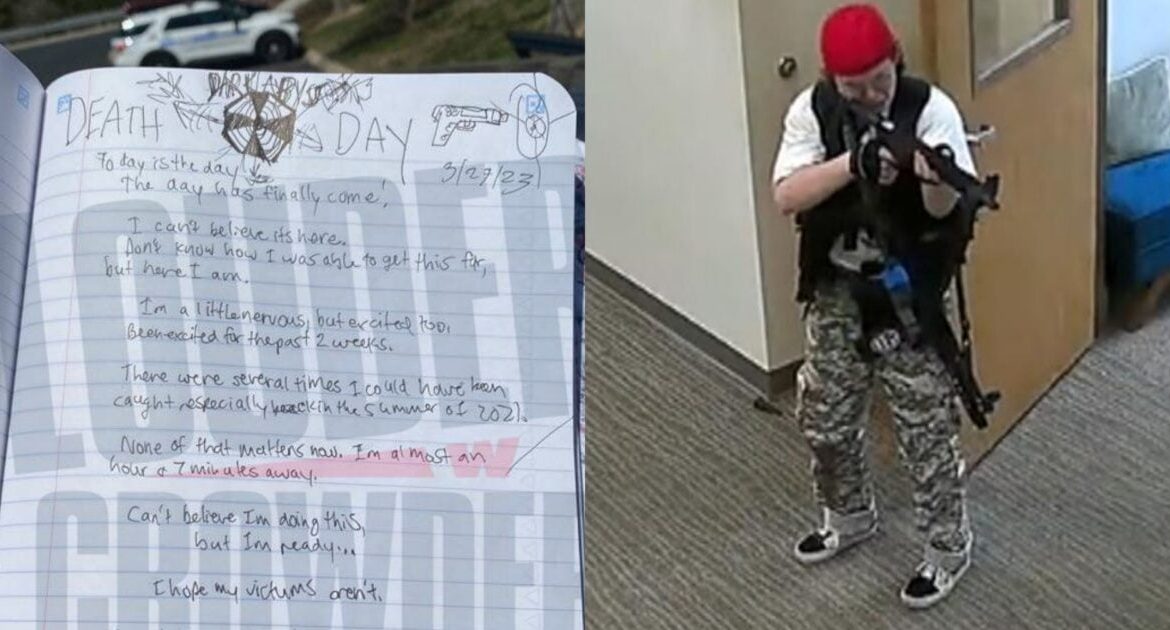 DARK ABYSS
DEATH DAY
3/27/23
Today is the day
The day has finally come!
I can't believe its here.
Don't know how I was able to get this far,
but here I am.
I'm a little nervous, but excited too.
Been excited for the past 2 weeks.
There were several times I could have been
caught, especially back in the summer of 2021.
None of that matters now. I'm almost an
hour & 7 minutes away.
Can't believe I'm doing this,
but I'm ready...
I hope my victums aren't.
LOUDER
W
CROWDER